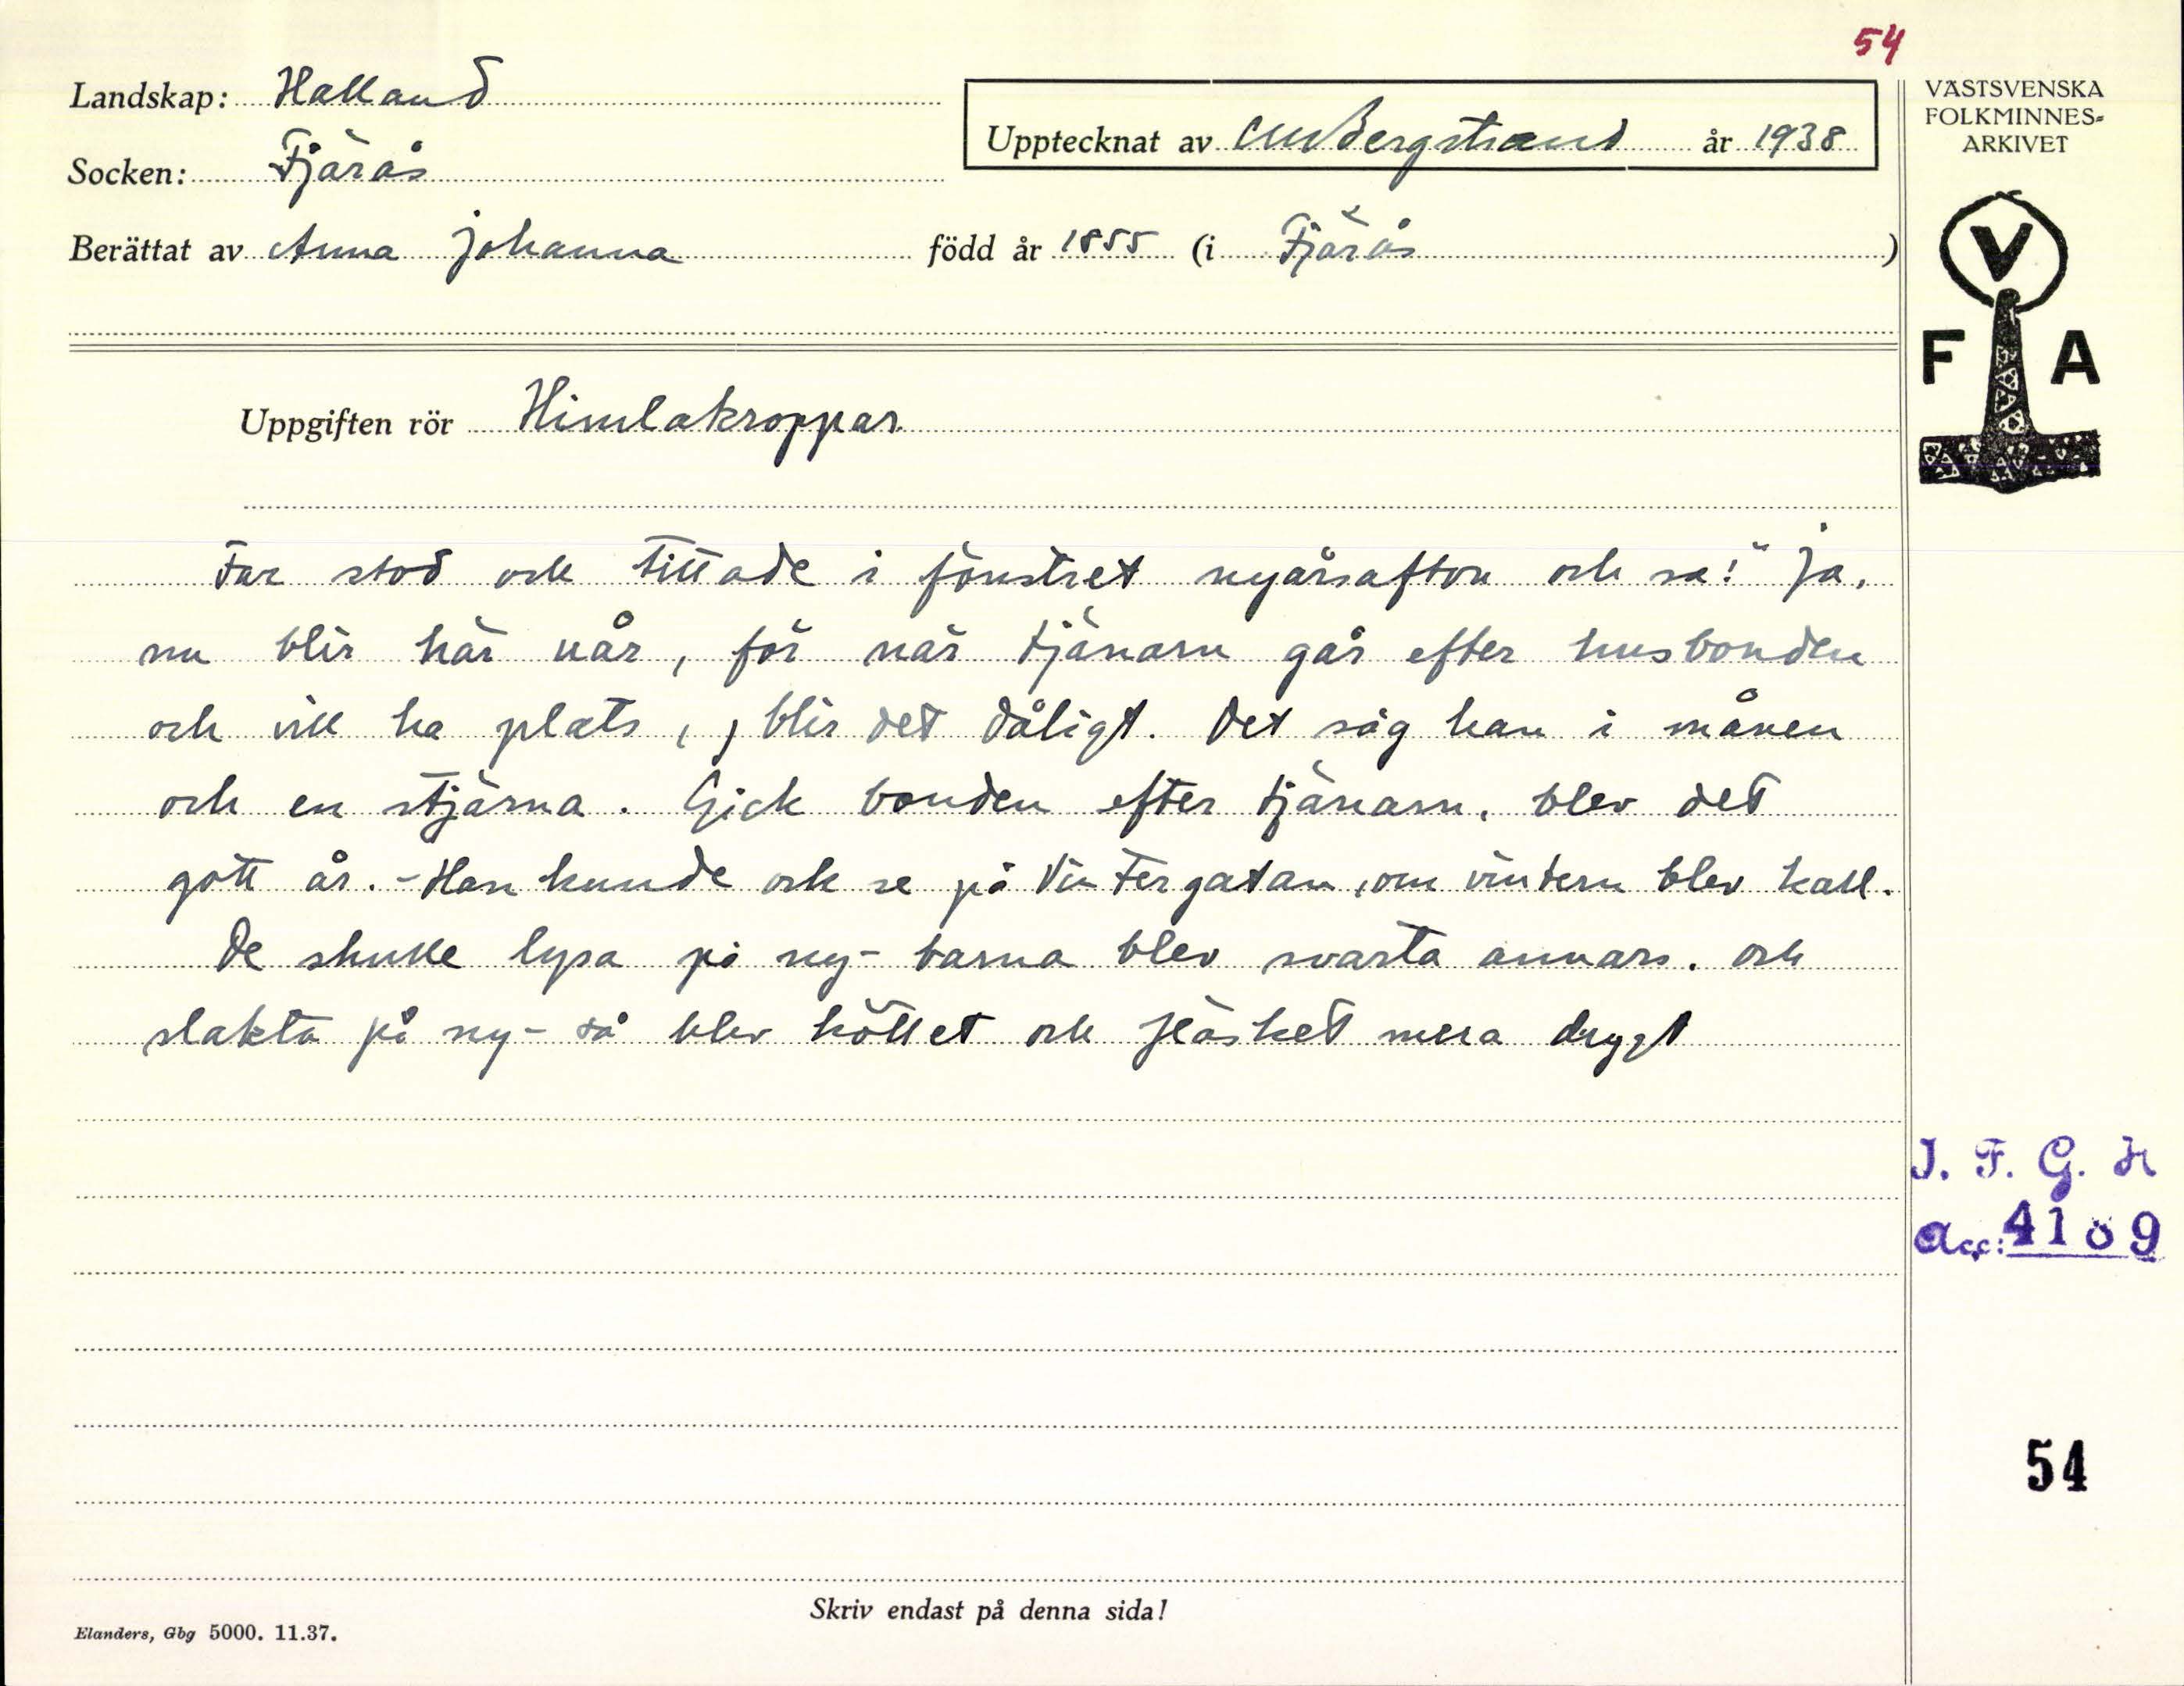 54
Landskap: Halland
Upptecknat av CM Bergstrand år 1938
VÄSTSVENSKA
FOLKMINNES-
ARKIVET
Socken: Fjärås
Berättat av Anna Johanna född år 1855 (i Fjärås)
V
F A
Uppgiften rör Himlakroppar
Far stod och tittade i fönstret nyårsafton och sa: "Ja,
nu blir här uår, för när tjänarn går efter husbonden
och vill ha plats, blir det dåligt. Det såg han i månen
och en stjärna. Gick bonden efter tjänarn, blev det
gott år. - Han kunde och se på Vintergatan, om vintern blev kall.
De skulle lysa på ny - barna blev svarta annars. och
slakta på ny - så blev köttet och fläsket mera drygt
I. F. G. H
Acc: 4109
54
Skriv endast på denna sida!
Elanders, Gbg 5000. 11.37.